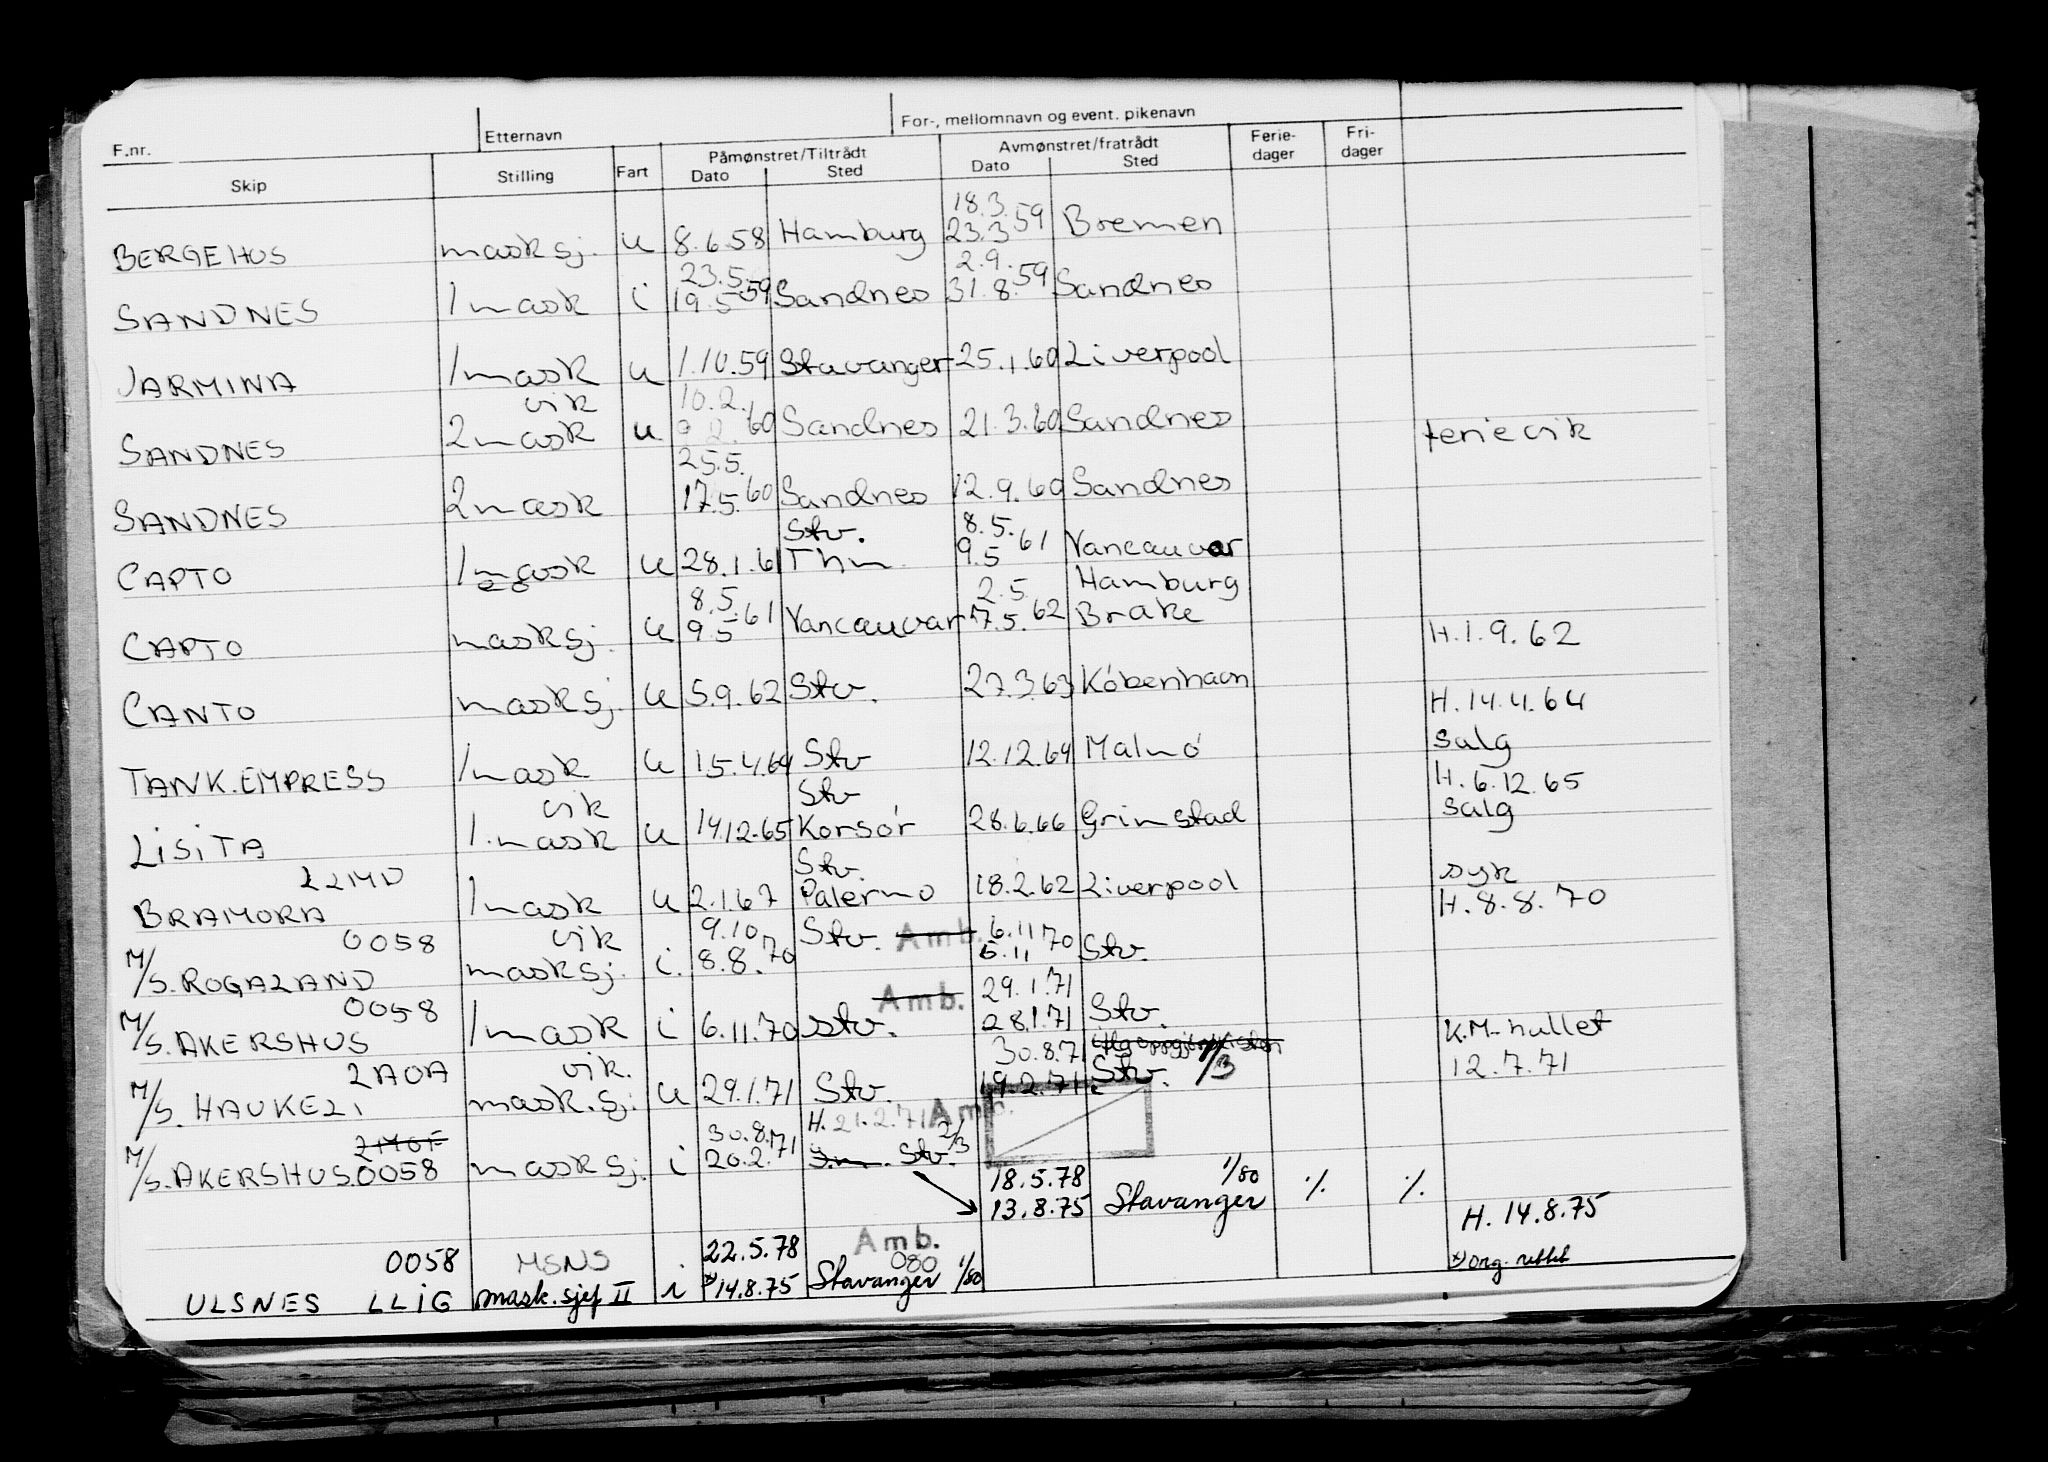 F.nr. Etternavn For-, mellomnavn og event. pikenavn
Skip Stilling Fart Påmønstret/Tiltrådt Dato Sted Avmønstret/fratrådt Dato Sted Ferie-dager Fri-dager
18.3.
BERGEHUS masksj. u 8.6.58 Hamburg 23.3 59 Bremen
23.5. 2.9.
SANDNES 1 mask i 19.5 59 Sandnes 31.8. 59 Sandnes
JARMINA 1 mask u 1.10.59 Stavanger 25.1.60 Liverpool
vik 10.2.
SANDNES 2 mask u 60 Sandnes 21.3.60 Sandnes ferievik
25.5.
SANDNES 2 mask 17.5.60 Sandnes 12.9.60 Sandnes
Stv. 8.5.
CAPTO 1 mask u 28.1.61 Thm. 9.5 61 Vancauvar
8.5. 2.5. Hamburg
CAPTO masksj. u 9.5 61 Vancauvar 17.5. 62 Brake H.1.9.62
CANTO masksj. u 5.9.62 Stv. 27.3.63 København H.14.4.64
TANK.EMPRESS 1 mask u 15.4.64 Stv 12.12.64 Malmø salg
vik Stv H.6.12.65
LISITA 1.mask u 14.12.65 Korsør 28.6.66 Grimstad salg
LLMD Stv. syk
BRAMORA 1 mask u 2.1.67 Palermo 18.2.62 Liverpool H.8.8.70
0058 vik 9.10 Stv. Amb. 6.11
M/S. ROGALAND masksj. i. 8.8.70 5.11 70 Stv.
0058 Amb. 29.1.71
M/S. AKERSHUS 1 mask i 6.11.70 Stv. 28.1.71 Stv. K.M-hullet
LAOA vik. 30.8.71 12.7.71
M/S. HAUKELI mask.sj. u 29.1.71 Stv. 19.2.71 Stv. 1/3
30.8.71 H. 21.2.71 Amb. 2/3
M/S. AKERSHUS.0058 masksj. i 20.2.71 Stv.
18.5.78 1/80
13.8.75 Stavanger ./. ./. H. 14.8.75
0058 MSNS 22.5.78 Amb. 080
ULSNES LLIG mask.sjef II i x) 14.8.75 Stavanger 1/80 x) org. rettet